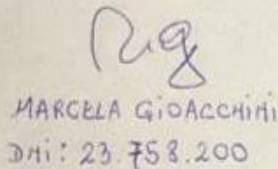 MARCELA GiOACCHiNi
DNi: 23.758.200